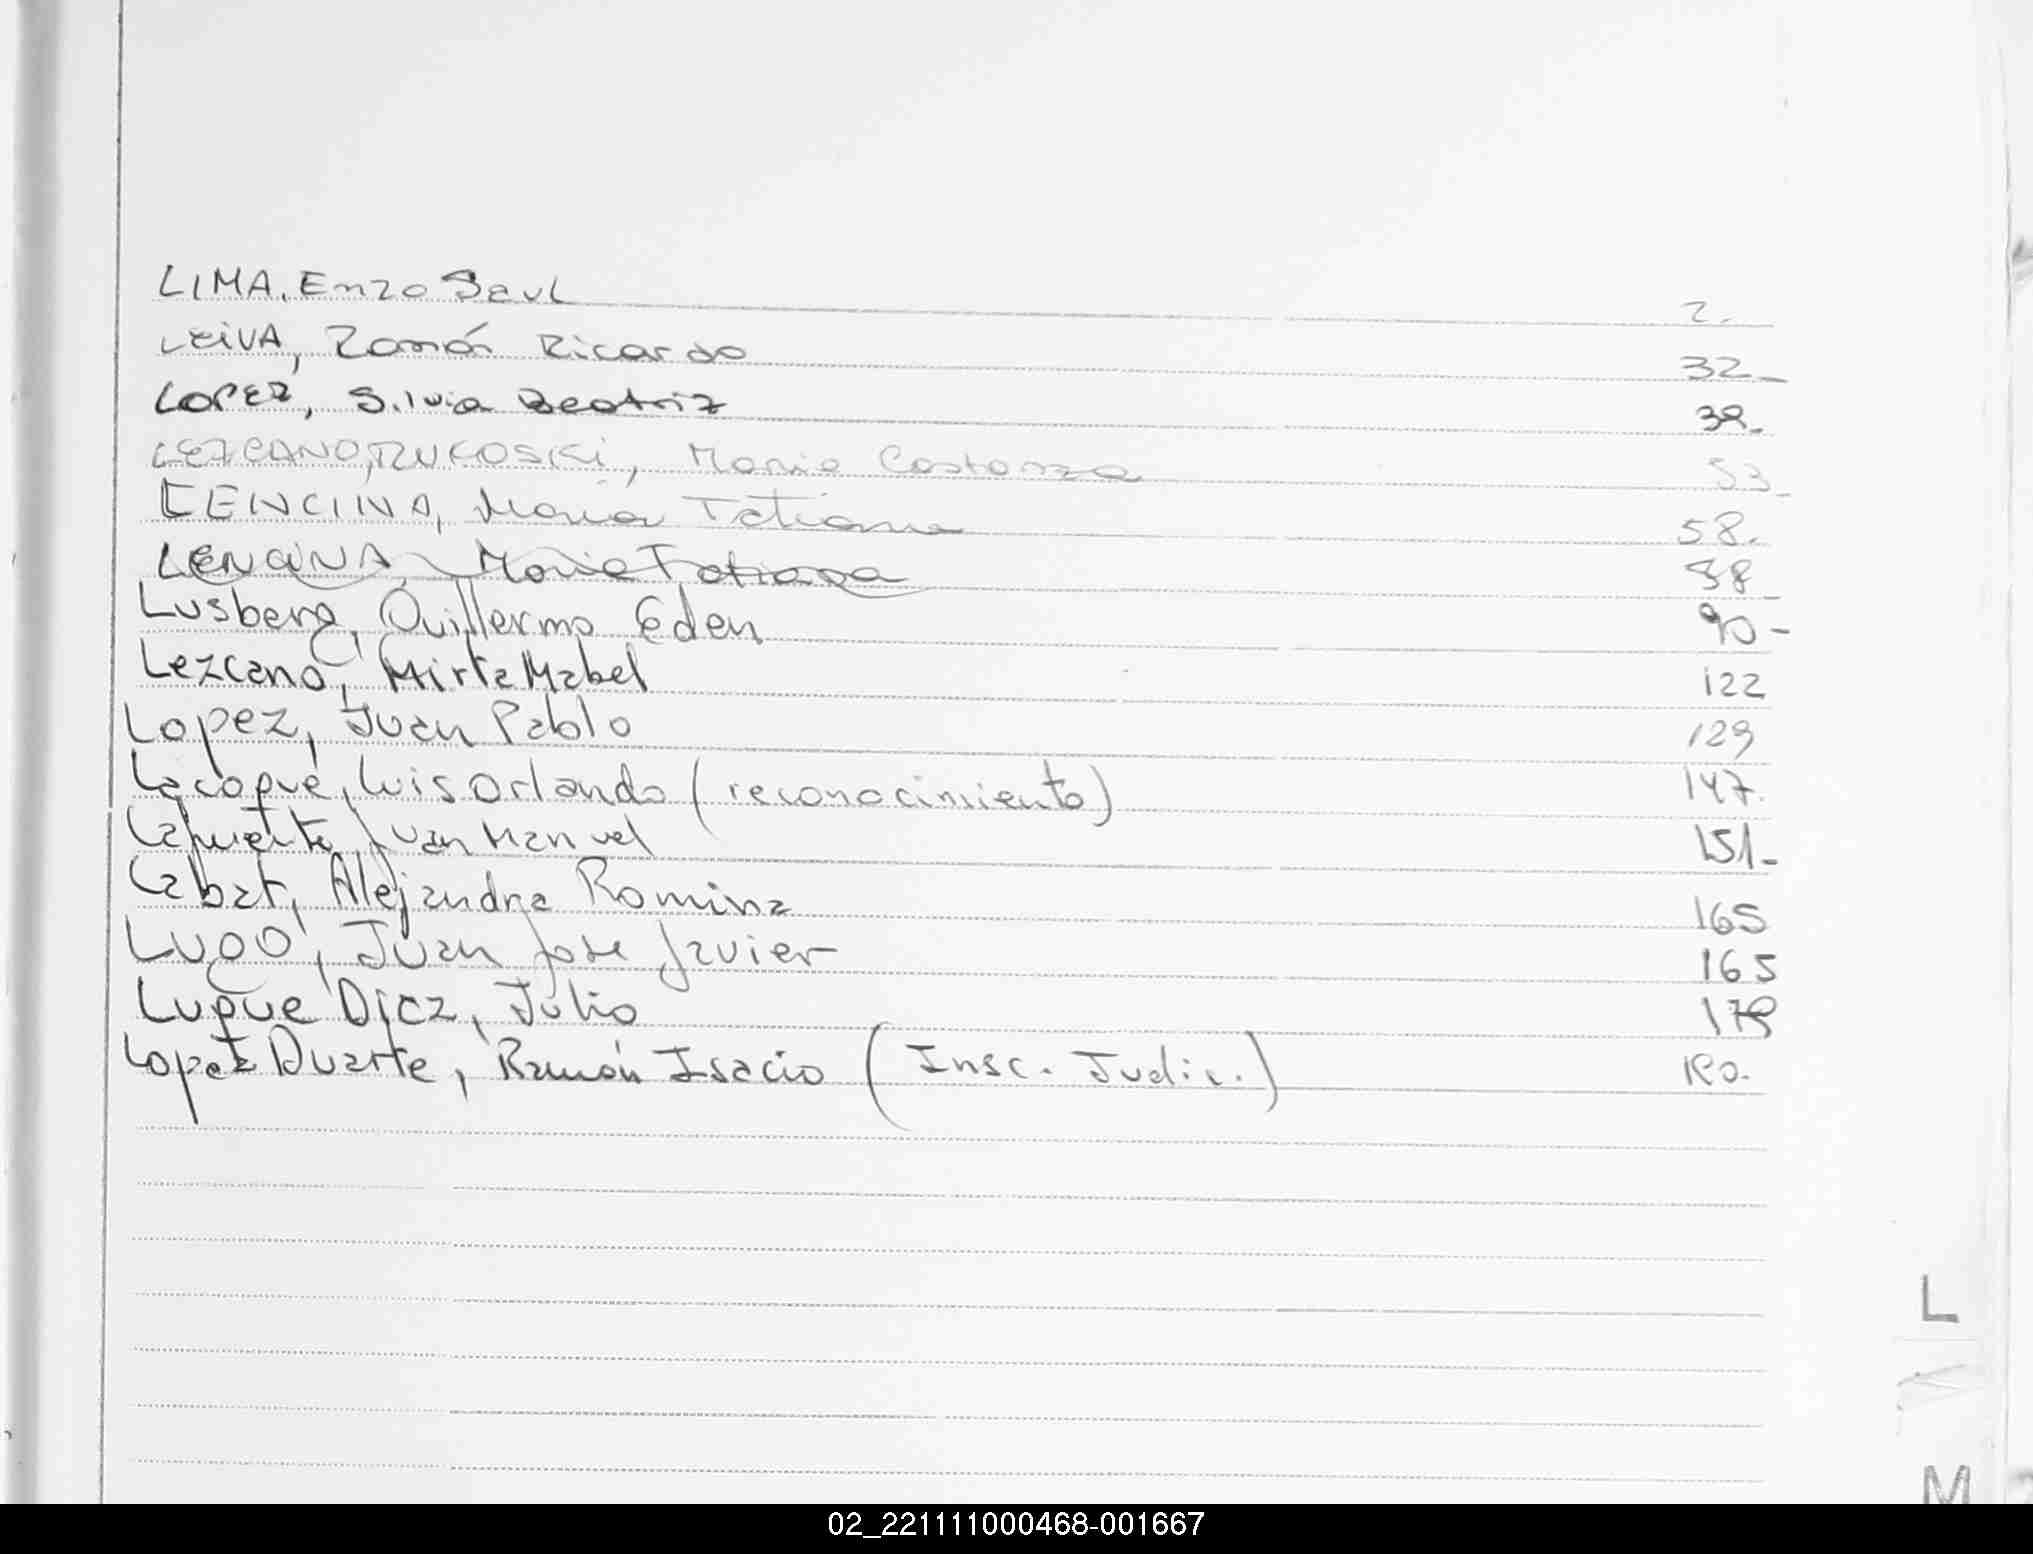 LIMA, Enzo Saul 2.
LEIVA, Ramón Ricardo 32-
LOPEZ, Silvia Beatriz 38-
LEZCANO, RUKOSKI, Maria Costanza 53-
LENCINA, María Tatiana 58.
LENCINA, Maria Tatiana 58-
Lusberg, Guillermo Eden 90-
Lezcano, Mirta Mabel 122
Lopez, Juan Pablo 129
Lacoque, Luis Orlando (reconocimiento) 147.
Lafuente, Juan Manuel 151-
Labat, Alejandra Romina 165
Lugo, Juan Jose Javier 165
Luque Diez, Julio
Lopez Duarte, Ramón Isacio (Insc. Judic.) 180.
L
M
02_221111000468-001667